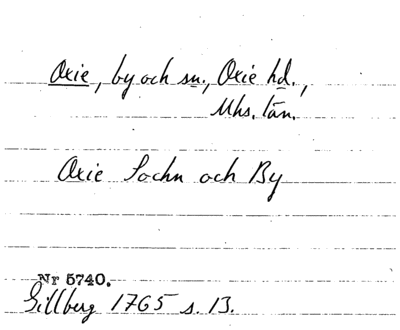 Oxie, by och sn., Oxie hd.,
Mhs. län.
Oxie Sochn och By
Nr 5740.
Gillberg 1765 s. 13.